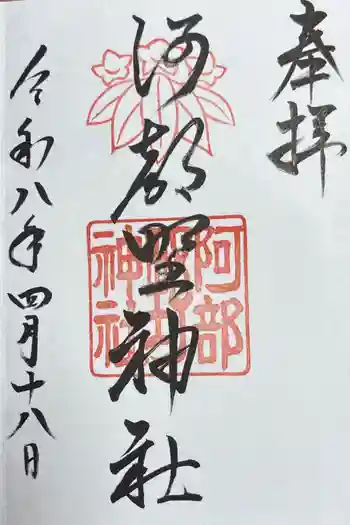 奉拝
阿部野神社
阿部野神社
令和八年四月十八日